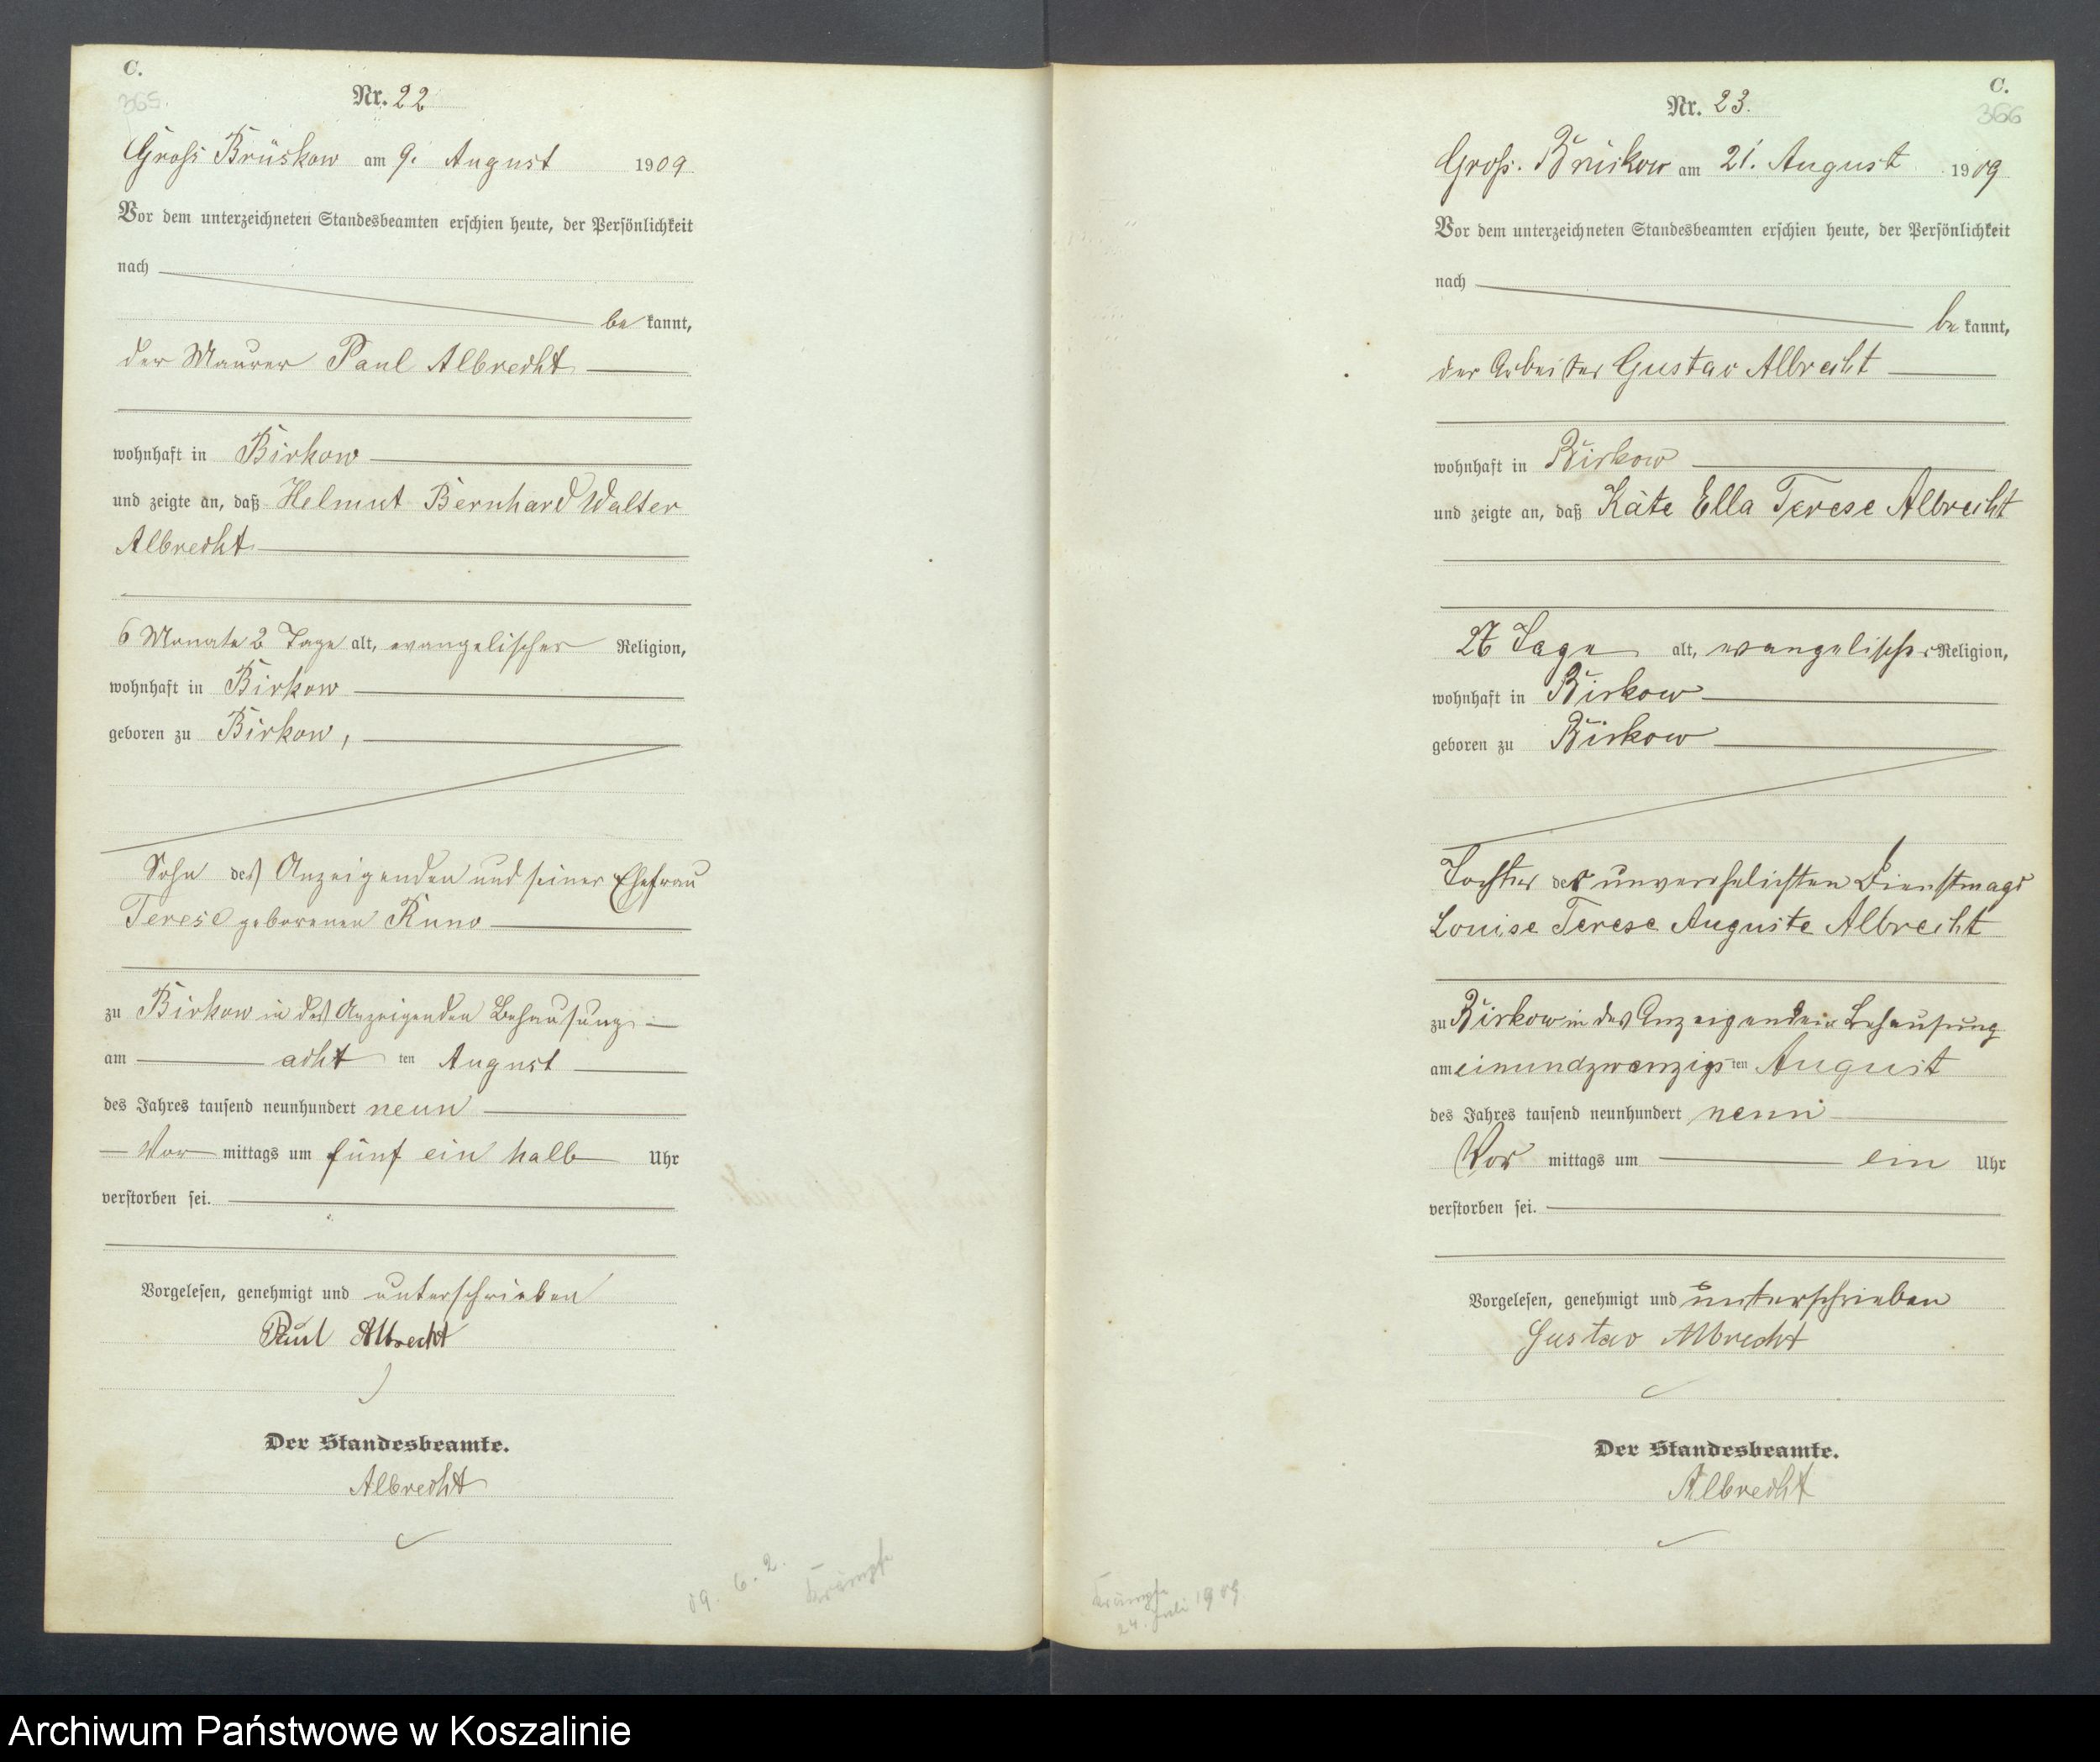 C.
365.
Nr. 22
Gross Brüskow am 9. August 1909
Vor dem unterzeichneten Standesbeamten erschien heute, der Persönlichkeit
nach
be kannt,
der Maurer Paul Albrecht
wohnhaft in Birkow
und zeigte an, daß Helmut Bernhard Walter
Albrecht
6 Monate 2 Tage alt, evangelischer Religion,
wohnhaft in Birkow
geboren zu Birkow,
Sohn des Anzeigenden und seiner Ehefrau
Terese geborenen Kuno
zu Birkow in des Anzeigenden Behausung
am acht ten August
des Jahres tausend neunhundert neun
Vor mittags um fünf ein halb Uhr
verstorben sei.
Vorgelesen, genehmigt und unterschrieben
Paul Albrecht
Der Standesbeamte.
Albrecht
09. 6. 2.
Krämpfe
C.
366
Nr. 23.
Groß. Brüskow am 21. August 1909
Vor dem unterzeichneten Standesbeamten erschien heute, der Persönlichkeit
nach
be kannt,
der Arbeiter Gustav Albrecht
wohnhaft in Birkow
und zeigte an, daß Käte Ella Terese Albrecht
27 Tage alt, evangelischer Religion,
wohnhaft in Birkow
geboren zu Birkow
Tochter der unverehelichten Dienstmagd
Louise Terese Auguste Albrecht
zu Birkow in des Anzeigenden Behausung
am einundzwanzigs ten August
des Jahres tausend neunhundert neun
Vor mittags um ein Uhr
verstorben sei.
Vorgelesen, genehmigt und unterschrieben
Gustav Albrecht
Der Standesbeamte.
Albrecht
Krämpfe
24. Juli 1909
Archiwum Państwowe w Koszalinie